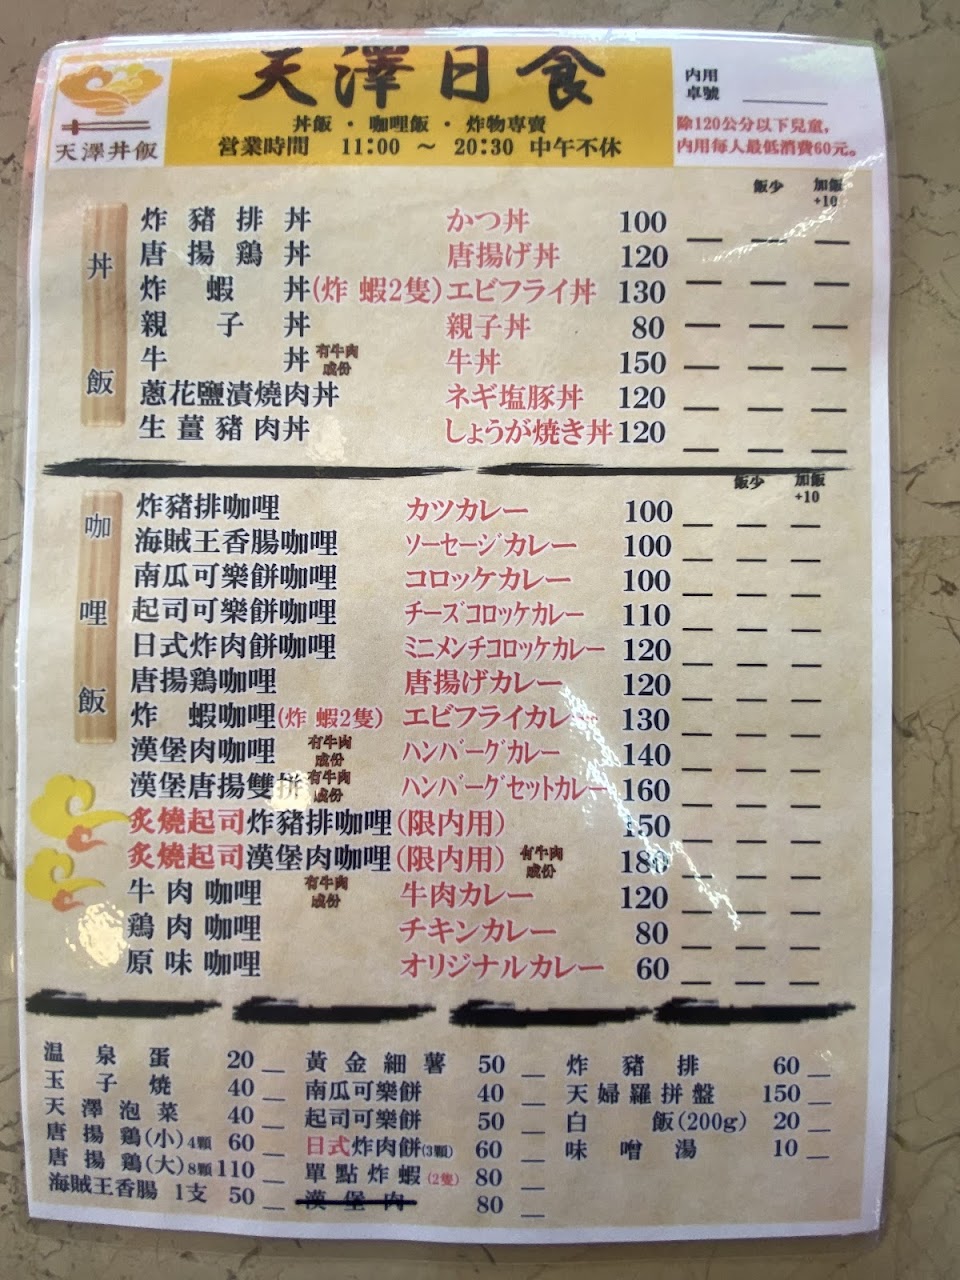 天澤丼飯
天澤日食
丼飯 · 咖哩飯 · 炸物專賣
営業時間 11:00 ~ 20:30 中午不休
內用
桌號
除120公分以下兒童,
內用每人最低消費60元。
飯少 加飯+10
丼飯
炸豬排丼 かつ丼 100
唐揚鶏丼 唐揚げ丼 120
炸蝦丼(炸蝦2隻) エビフライ丼 130
親子丼 親子丼 80
牛丼 有牛肉成份 牛丼 150
蔥花鹽漬燒肉丼 ネギ塩豚丼 120
生薑豬肉丼 しょうが焼き丼 120
飯少 加飯+10
咖哩飯
炸豬排咖哩 カツカレー 100
海賊王香腸咖哩 ソーセージカレー 100
南瓜可樂餅咖哩 コロッケカレー 100
起司可樂餅咖哩 チーズコロッケカレー 110
日式炸肉餅咖哩 ミニメンチコロッケカレー 120
唐揚鶏咖哩 唐揚げカレー 120
炸蝦咖哩(炸蝦2隻) エビフライカレー 130
漢堡肉咖哩 有牛肉成份 ハンバーグカレー 140
漢堡唐揚雙拼 有牛肉成份 ハンバーグセットカレー 160
炙燒起司炸豬排咖哩(限內用) 150
炙燒起司漢堡肉咖哩(限內用) 有牛肉成份 180
牛肉咖哩 有牛肉成份 牛肉カレー 120
鶏肉咖哩 チキンカレー 80
原味咖哩 オリジナルカレー 60
温泉蛋 20
玉子燒 40
天澤泡菜 40
唐揚鶏(小)4顆 60
唐揚鶏(大)8顆 110
海賊王香腸 1支 50
黃金細薯 50
南瓜可樂餅 40
起司可樂餅 50
日式炸肉餅(3顆) 60
單點炸蝦(2隻) 80
漢堡肉 80
炸豬排 60
天婦羅拼盤 150
白飯(200g) 20
味噌湯 10